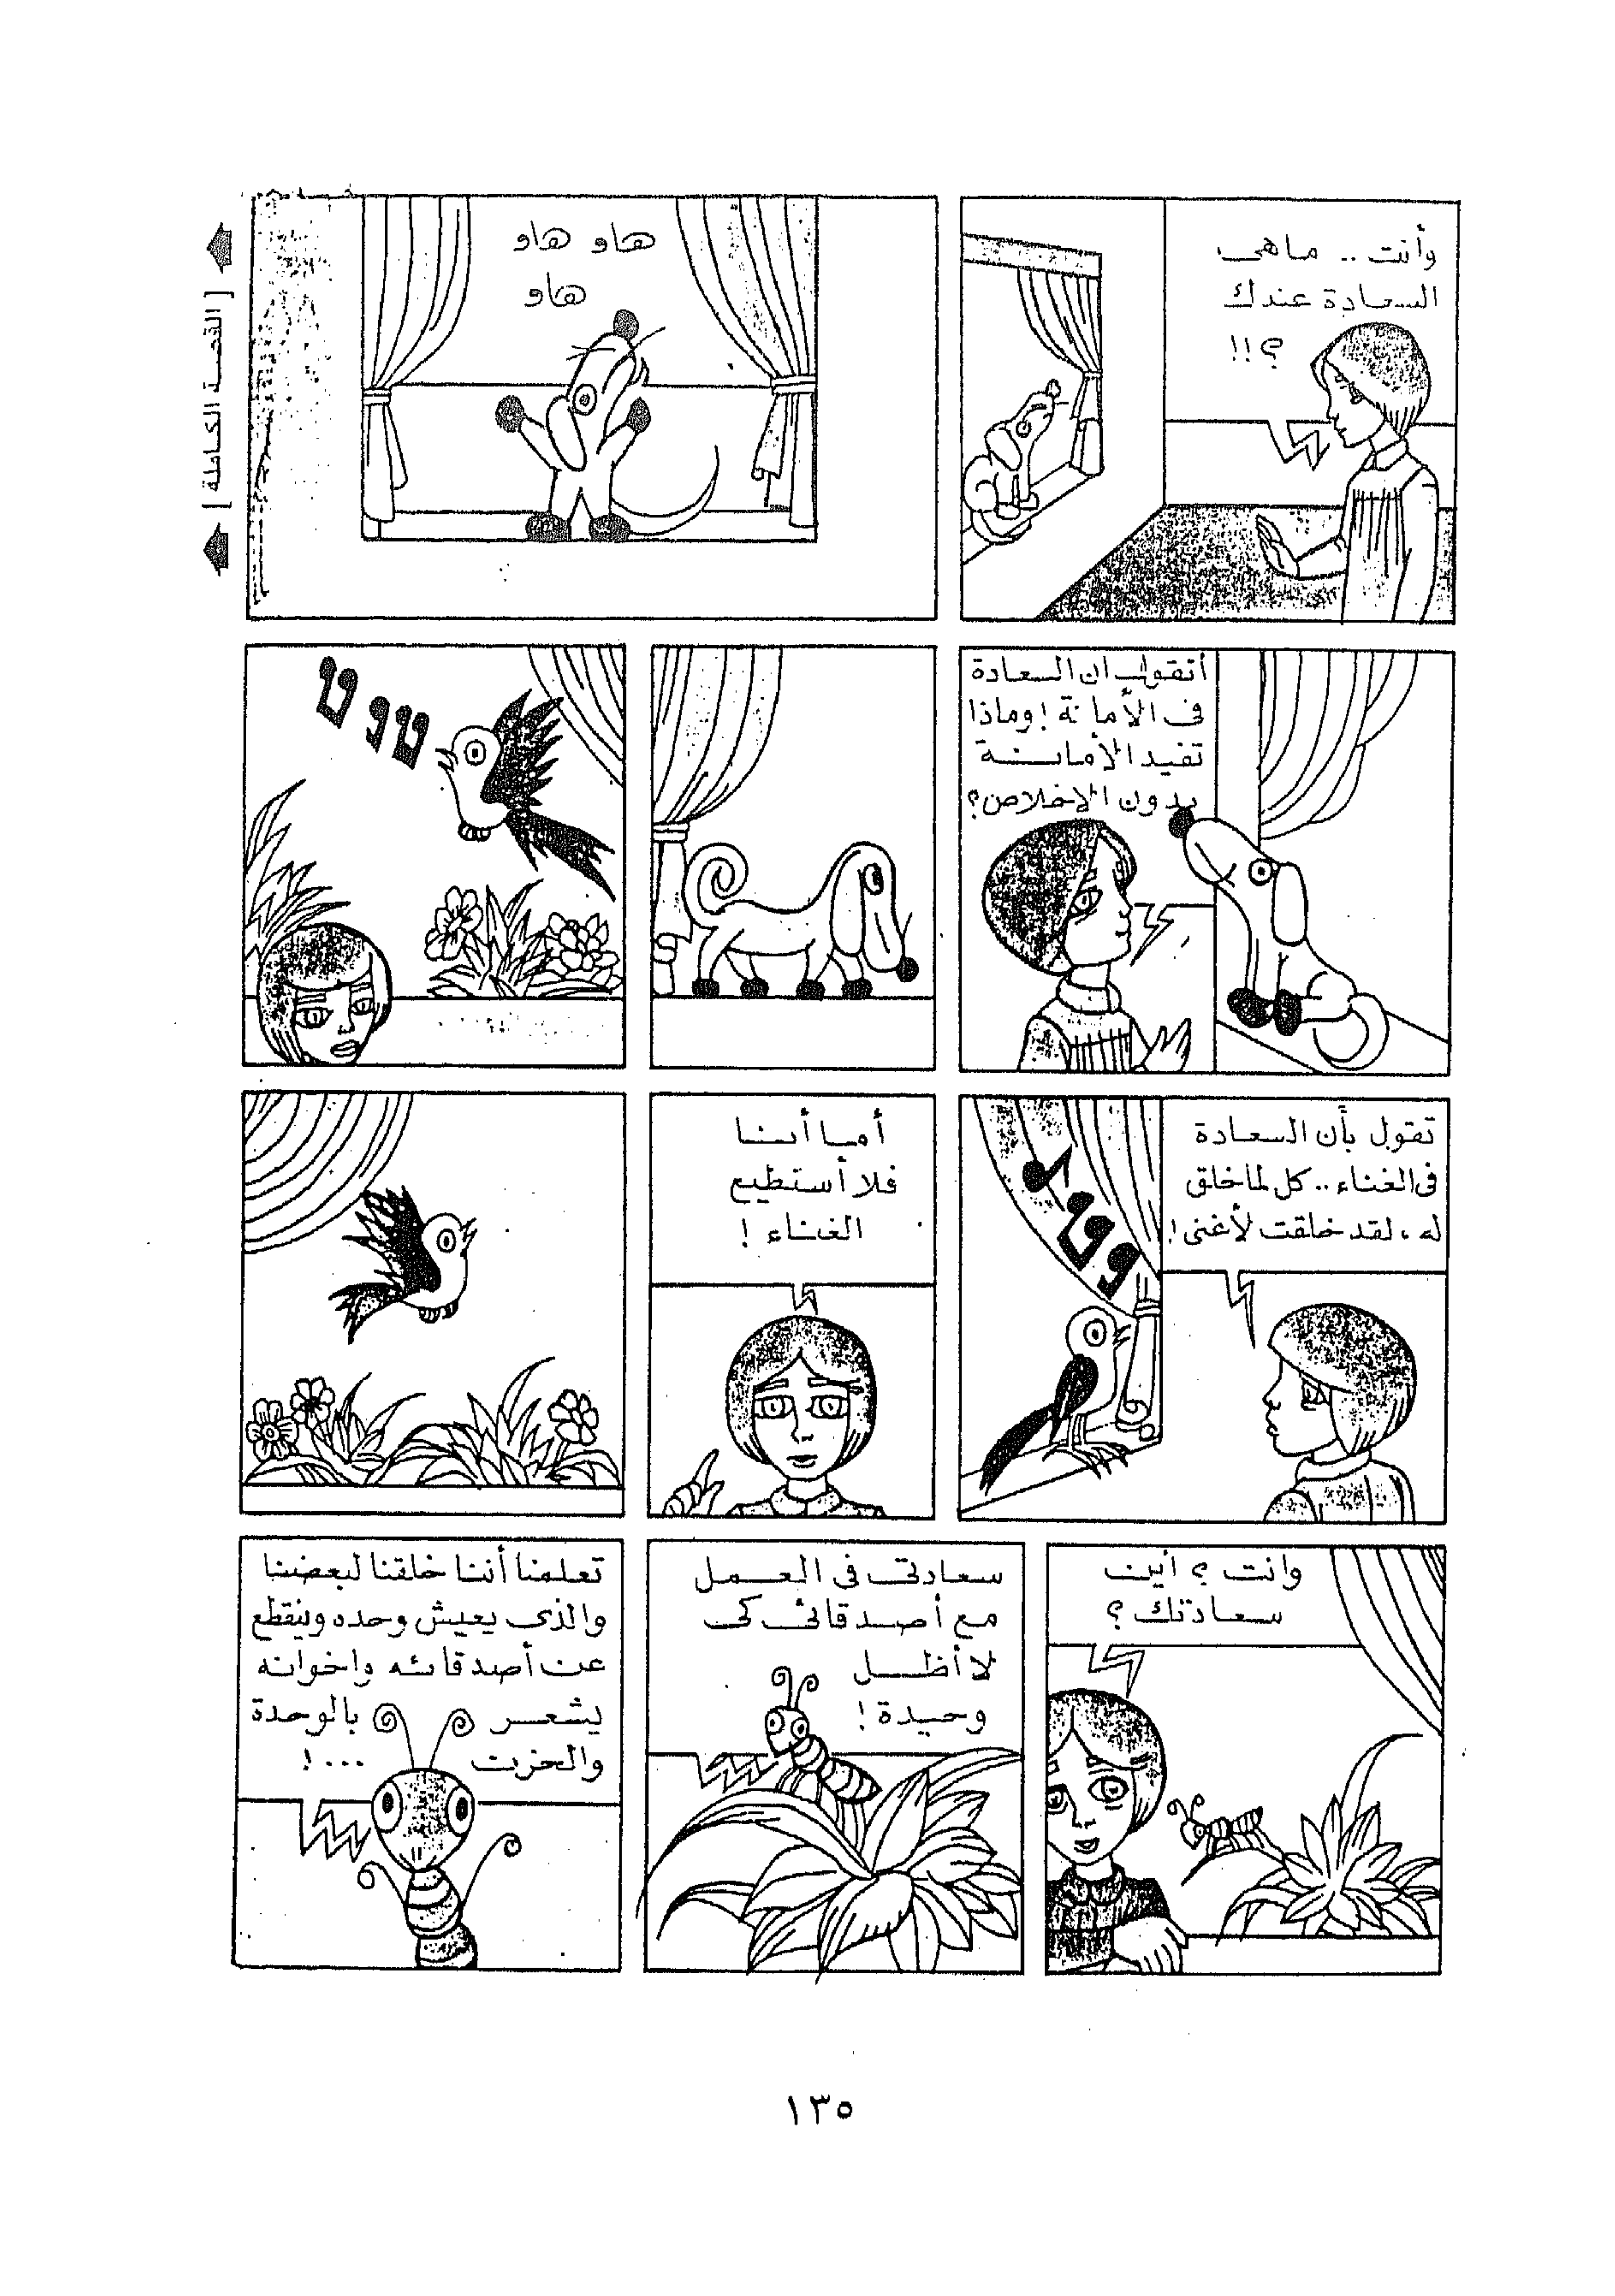 وأنت .. ماهى
السعادة عندك
؟!!
هاو هاو
هاو
[ القصة الكاملة ]
أتقول ان السعادة
فى الأمانة ! وماذا
تفيد الأمانة
بدون الاخلاص ؟
تقول بأن السعادة
فى الغناء .. كل لما خلق
له ، لقد خلقت لأغنى !
أما أنا
فلا أستطيع
الغناء !
وانت ؟ أين
سعادتك ؟
سعادتى فى العمل
مع أصدقائى كى
لا أظل
وحيدة !
تعلمنا أننا خلقنا لبعضنا
والذى يعيش وحده وينقطع
عن أصدقائه واخوانه
يشعر بالوحدة
والحزن ... !
١٣٥